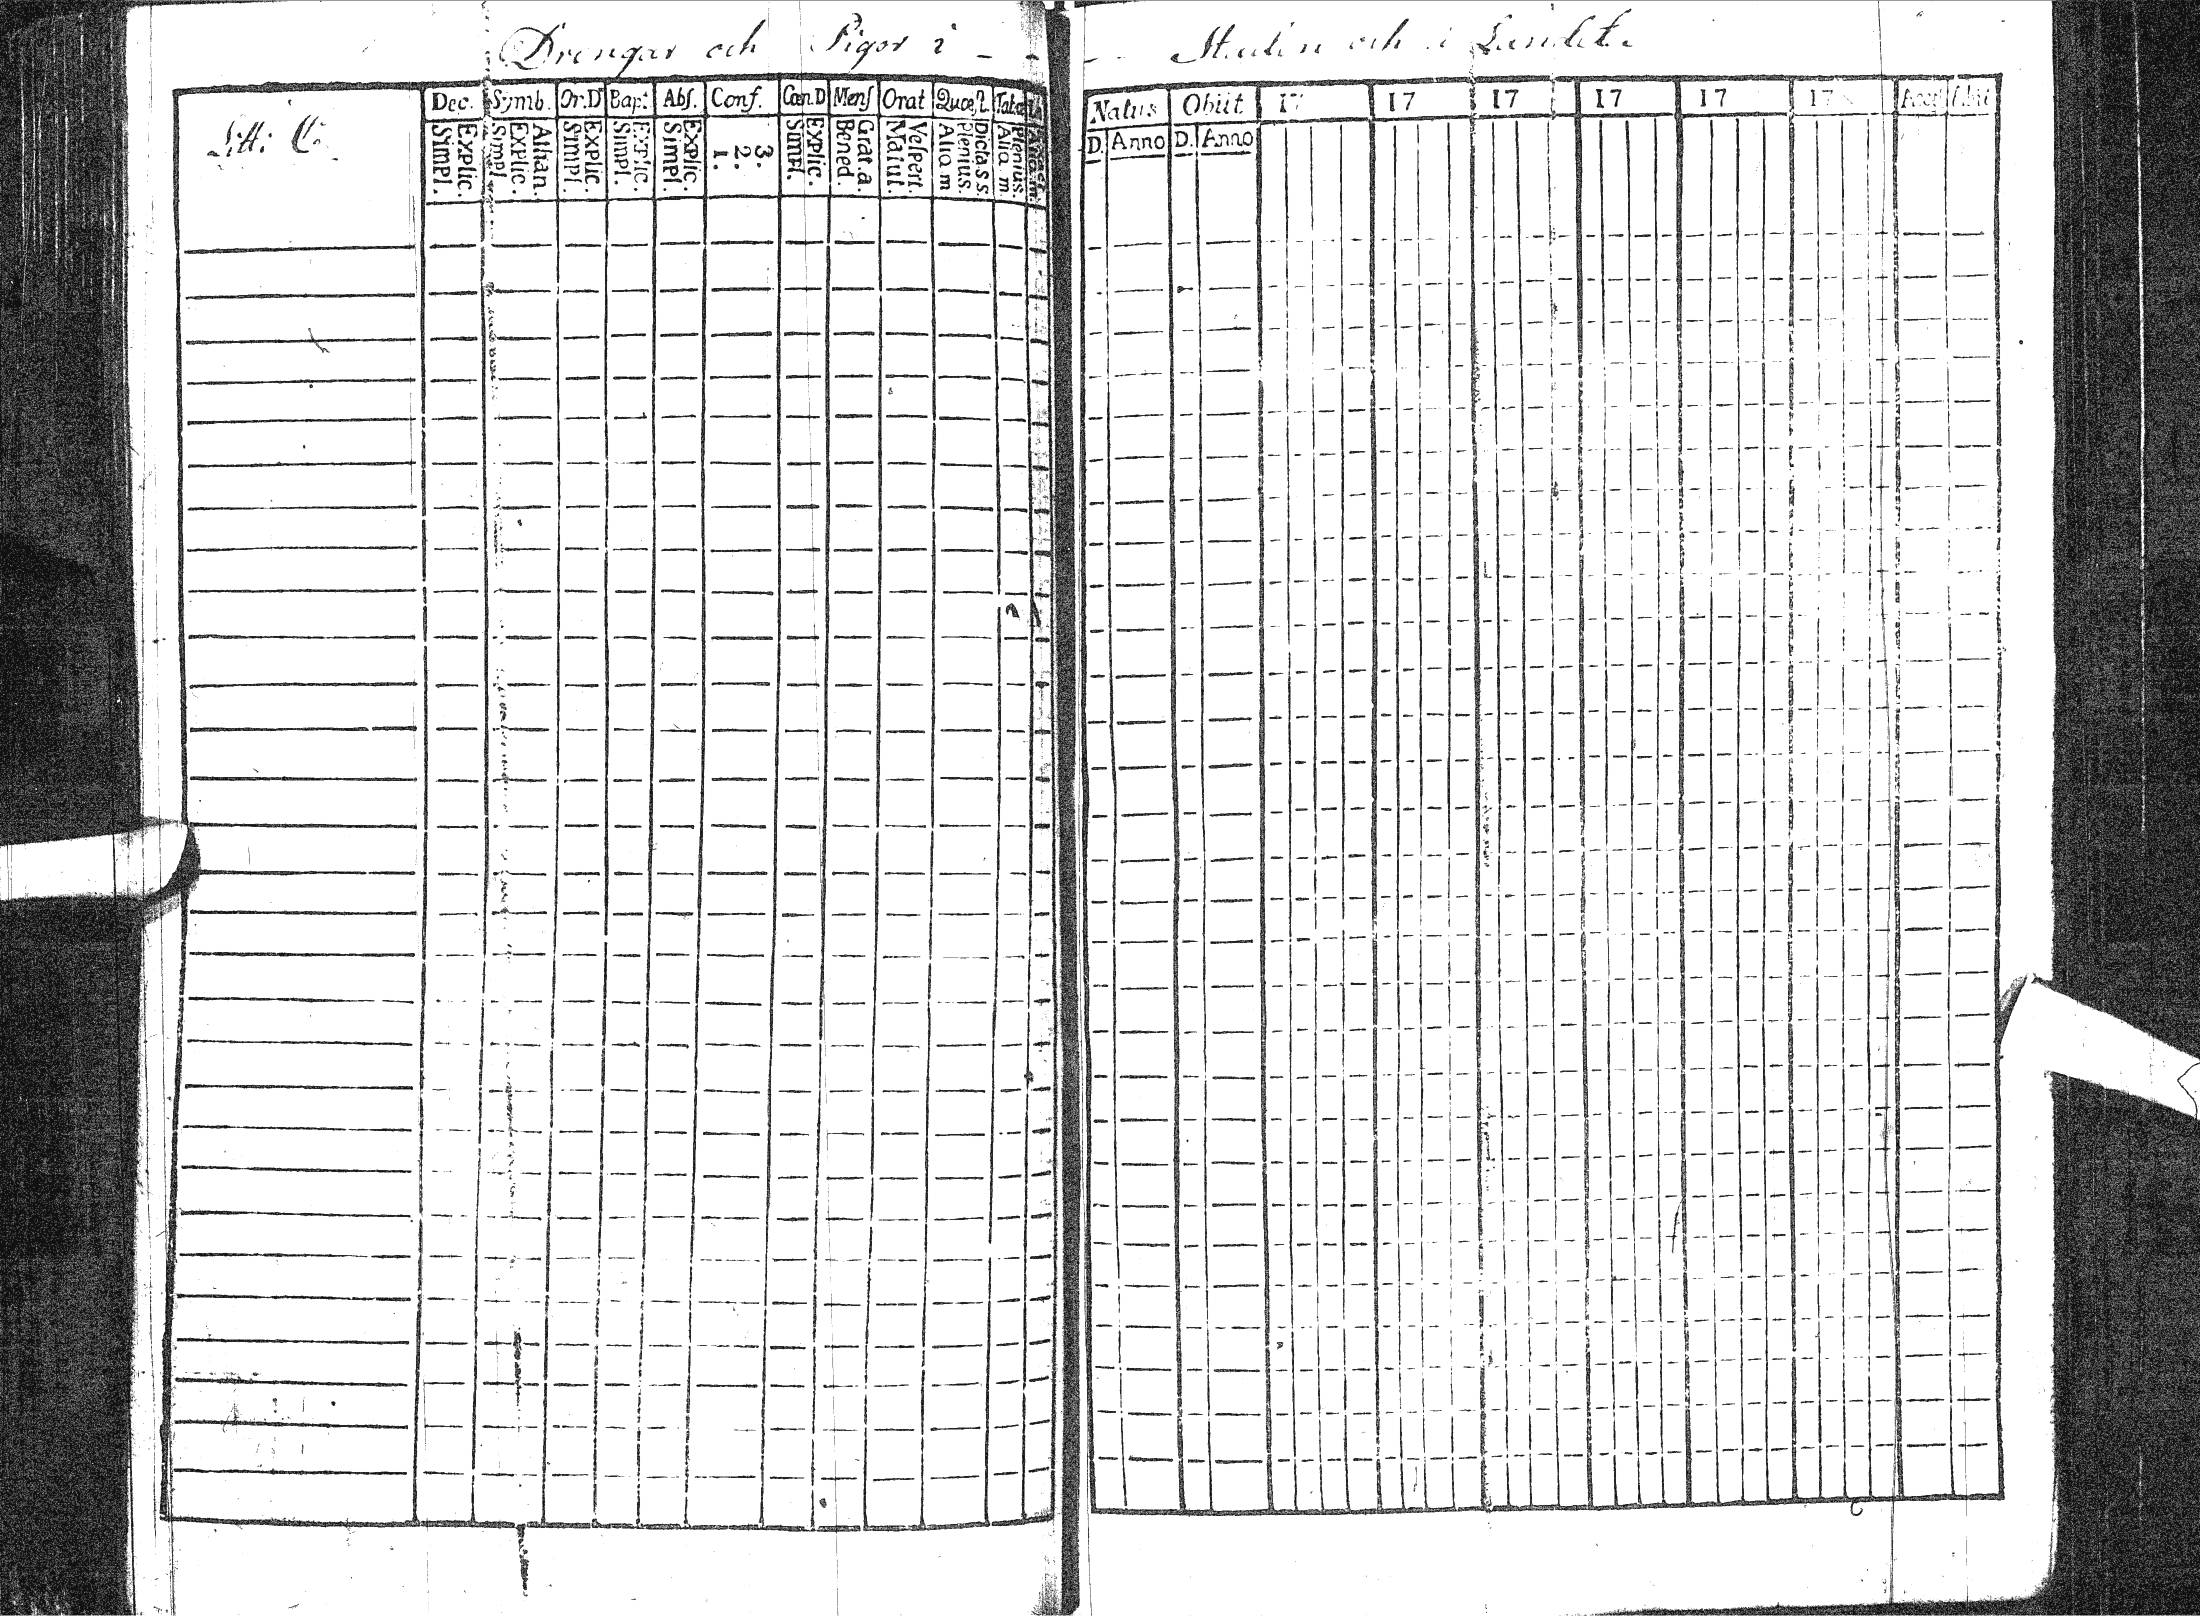 Drengar och Pigor i - -
Litt: C.
Dec. Symb. Or.D Bapt Abs. Conf. Cœn.D Mens Orat Quæst.
Simpl. Explic. Simpl. Explic. Athan. Simpl. Explic. Simpl. Explic. Simpl. Explic. 1. 2. 3. Simpl. Explic. Bened. Grat.a. Matut. Vespert. Aliq m Plenius. Dicta s s. Aliq m. Plenius.
- - Staden och i Landet.
Natus Obiit 17 17 17 17 17 17 Acces Abiit
D. Anno D. Anno